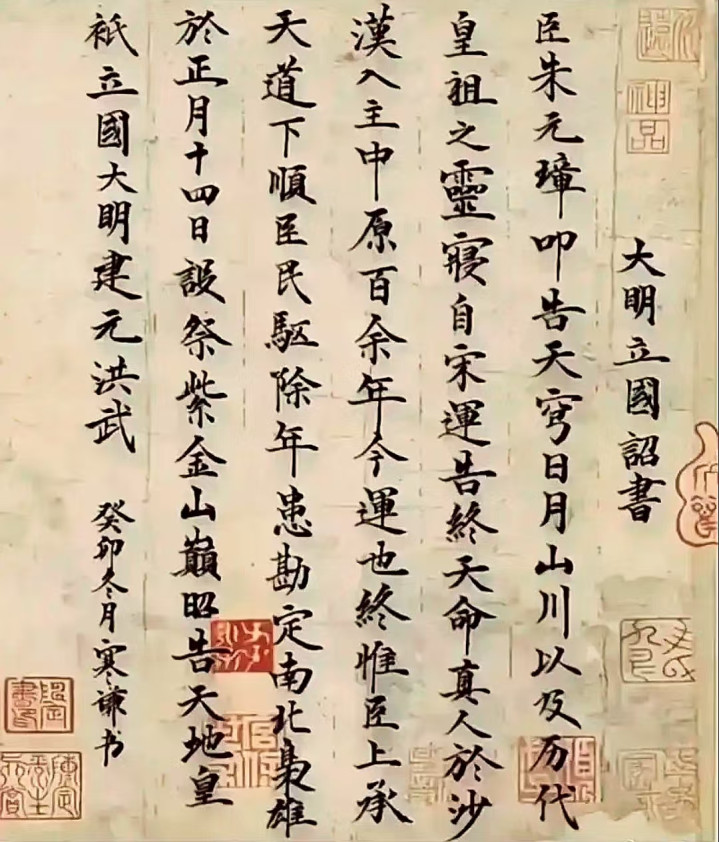 大明立國詔書
臣朱元璋叩告天穹日月山川以及历代
皇祖之靈寢自宋運告終天命真人於沙
漢入主中原百余年今運也終惟臣上承
天道下順臣民駆除年患勘定南北梟雄
於正月十四日設祭紫金山巔昭告天地皇
祇立國大明建元洪武
癸卯冬月寒谦书
神品